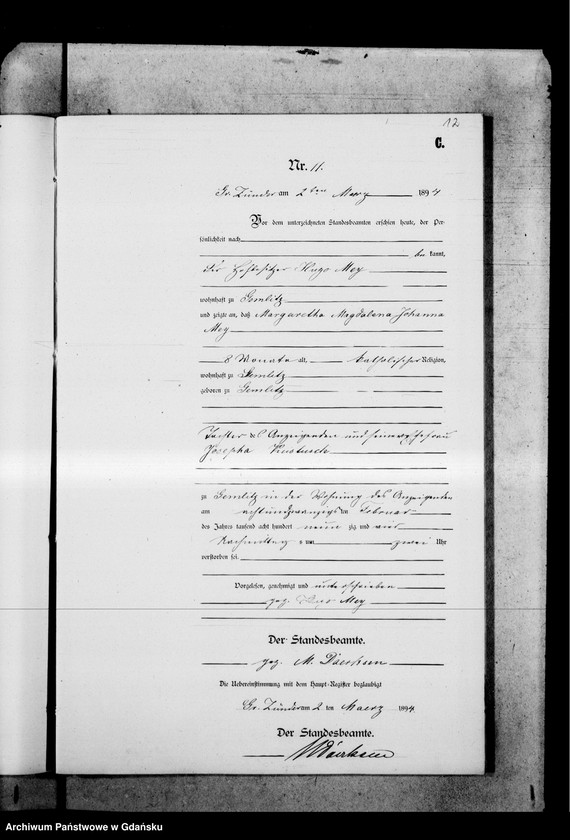 12
C.
Nr. 11.
Gr. Zünder am 2ten Maerz 1894
Vor dem unterzeichneten Standesbeamten erschien heute, der Per-
sönlichkeit nach
be kannt,
der Hofbesitzer Hugo Mey
wohnhaft zu Gemlitz
und zeigte an, daß Margaretha Magdalena Johanna
Mey
8 Monate alt, katholischer Religion,
wohnhaft zu Gemlitz
geboren zu Gemlitz
Tochter des Anzeigenden und seiner Ehefrau
Josepha
zu Gemlitz in der Wohnung des Anzeigenden
am achtundzwanzigsten Februar
des Jahres tausend acht hundert neun zig und vier
Nachmittag s um zwei Uhr
verstorben sei.
Vorgelesen, genehmigt und unterschrieben
gez. Hugo Mey
Der Standesbeamte.
gez. M. Doerksen
Die Uebereinstimmung mit dem Haupt-Register beglaubigt
Gr. Zünder am 2 ten Maerz 1894
Der Standesbeamte.
MDoerksen
Archiwum Państwowe w Gdańsku